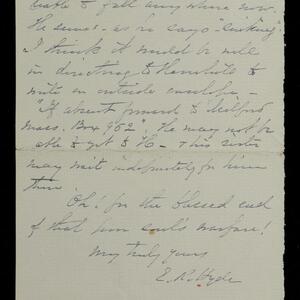 liable to fall any where now.
He seems - as he says - "sinking".
I think it would be well
in directing to Honolulu to
write on outside envelope -
"If absent forward to Medford
Mass. Box 952". He may not be
able to get to H - & his sister
may wait indefinitely for him
there.
Oh! for the blessed end
of that poor soul's warfare!
Very truly yours
E. R. Hyde